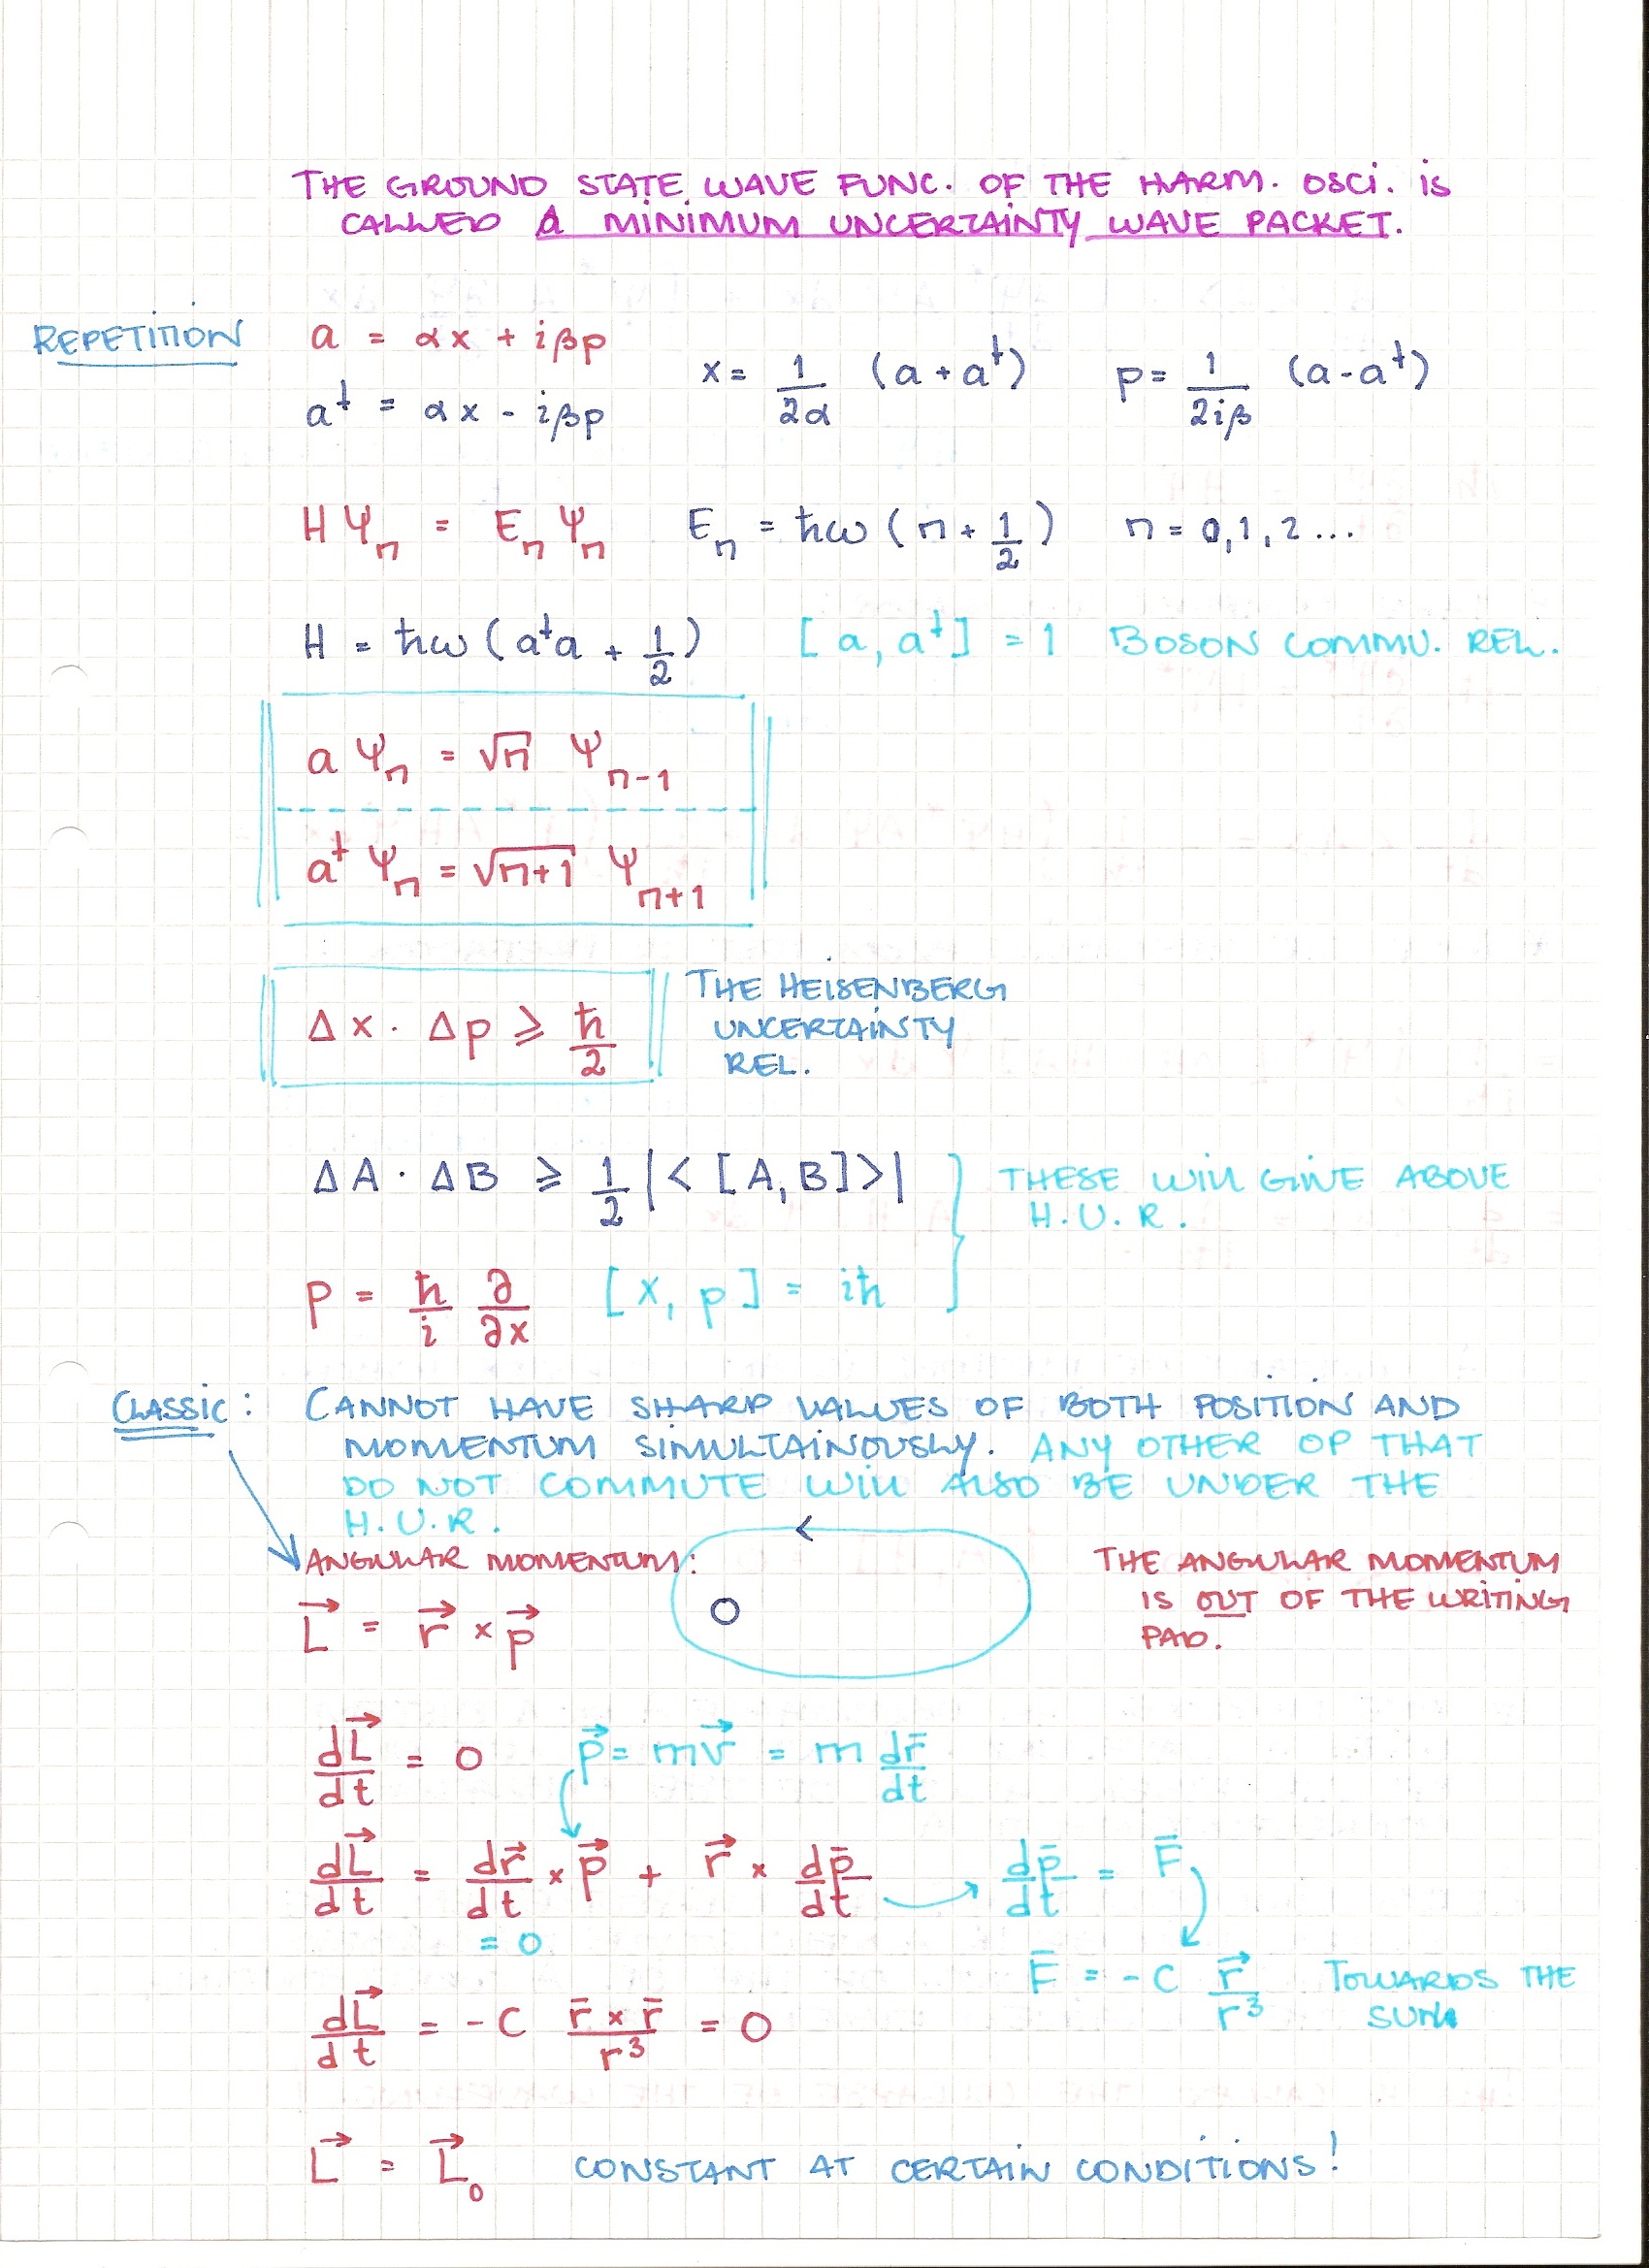 THE GROUND STATE WAVE FUNC. OF THE HARM. OSCI. IS
CALLED A MINIMUM UNCERTAINTY WAVE PACKET.
REPETITION
a = αx + iβp
a† = αx - iβp
x = 1/2α (a + a†)
p = 1/2iβ (a - a†)
HΨn = EnΨn
En = ħω (n + 1/2)
n = 0, 1, 2 ...
H = ħω (a†a + 1/2)
[a, a†] = 1 BOSON COMMU. REL.
aΨn = √n Ψn-1
a†Ψn = √n+1 Ψn+1
Δx · Δp ⩾ ħ/2
THE HEISENBERG
UNCERTAINSTY
REL.
ΔA · ΔB ⩾ 1/2 |<[A,B]>|
THESE WILL GIVE ABOVE
H.U.R.
P = ħ/i ∂/∂x
[x, p] = iħ
CLASSIC: CANNOT HAVE SHARP VALUES OF BOTH POSITION AND
MOMENTUM SIMULTAINOUSLY. ANY OTHER OP THAT
DO NOT COMMUTE WILL ALSO BE UNDER THE
H.U.R.
ANGULAR MOMENTUM:
L⃗ = r⃗ × p⃗
THE ANGULAR MOMENTUM
IS OUT OF THE WRITING
PAD.
dL⃗/dt = 0
p⃗ = mv⃗ = m dr̄/dt
dL⃗/dt = dr⃗/dt × p⃗ + r⃗ × dp̄/dt
dp̄/dt = F̄
= 0
F̄ = -C r⃗/r³
TOWARDS THE
SUN
dL⃗/dt = -C r̄ × r̄/r³ = 0
L⃗ = L⃗0 CONSTANT AT CERTAIN CONDITIONS!